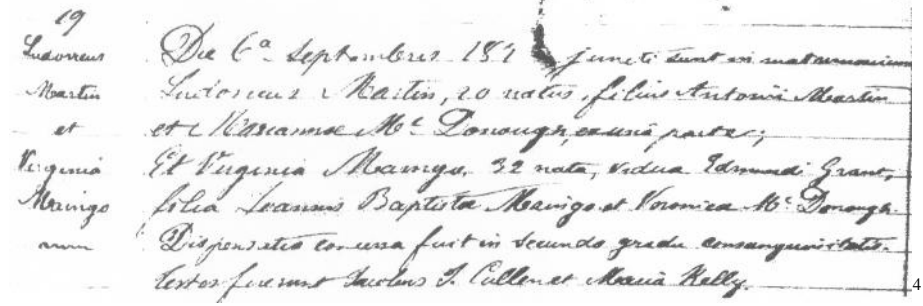 19
Ludovicus Martin et Virginia Maingo
Die 6a Septembris 187 juncti sunt in matrimonium
Ludovicus Martin, 20 natus, filius Antonii Martin
et Mariannae Mc Donough, ex una parte;
Et Virginia Maingo, 32 nata, vidua Edmundi Grant,
filia Joannis Baptista Maingo et Veronica Mc Donough
Dispensatio concessa fuit in secundo gradu consanguinitatis.
Testes fuerunt Jacobus J. Cullen et Maria Kelly.
4